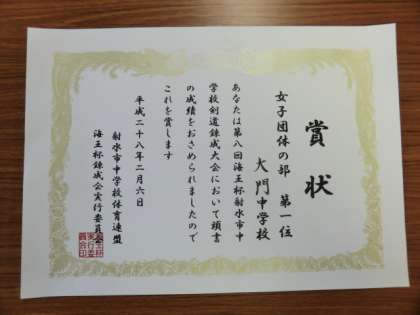 賞状
女子団体の部 第一位
大門中学校
あなたは第八回海王杯射水市中
学校剣道錬成大会において頭書
の成績をおさめられましたので
これを賞します
平成二十八年二月六日
射水市中学校体育連盟
海王杯錬成会実行委員会